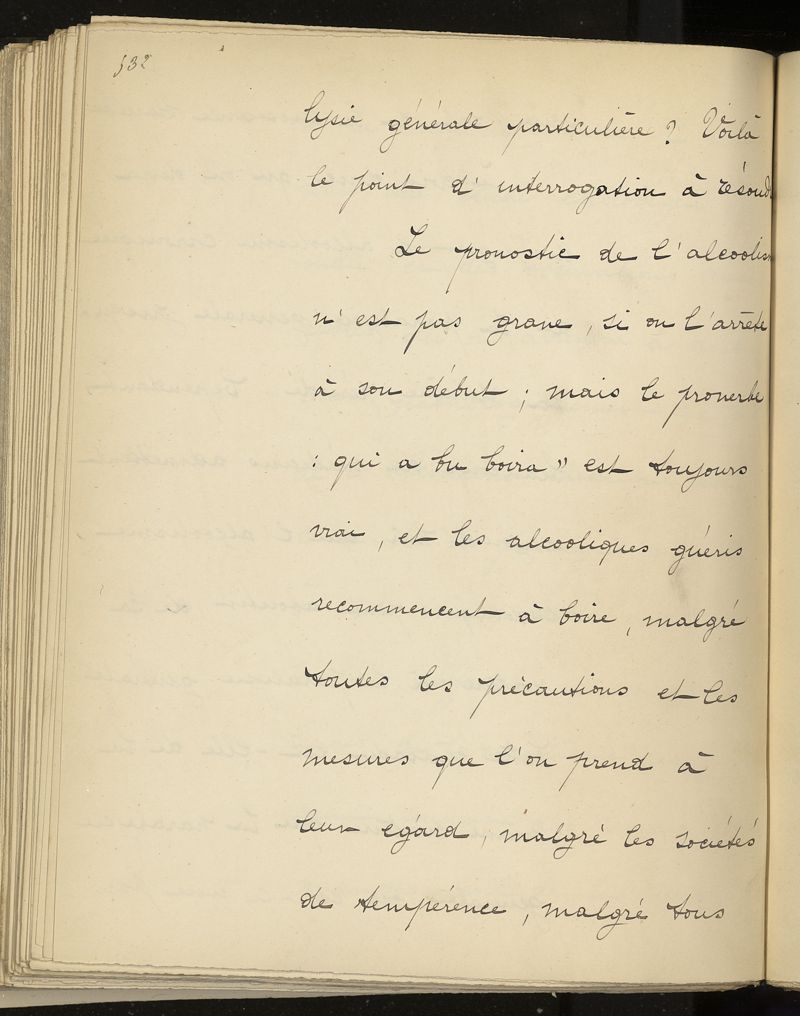 532
lysie générale particulière ? Voilà
le point d'interrogation à résoud
Le pronostic de l'alcoolism
n'est pas grave, si on l'arrête
à son début ; mais le proverbe
: qui a bu boira" est toujours
vrai, et les alcooliques guéris
recommencent à boire, malgré
toutes les précautions et les
mesures que l'on prend à
leur égard, malgré les sociétés
de tempérence, malgré tous